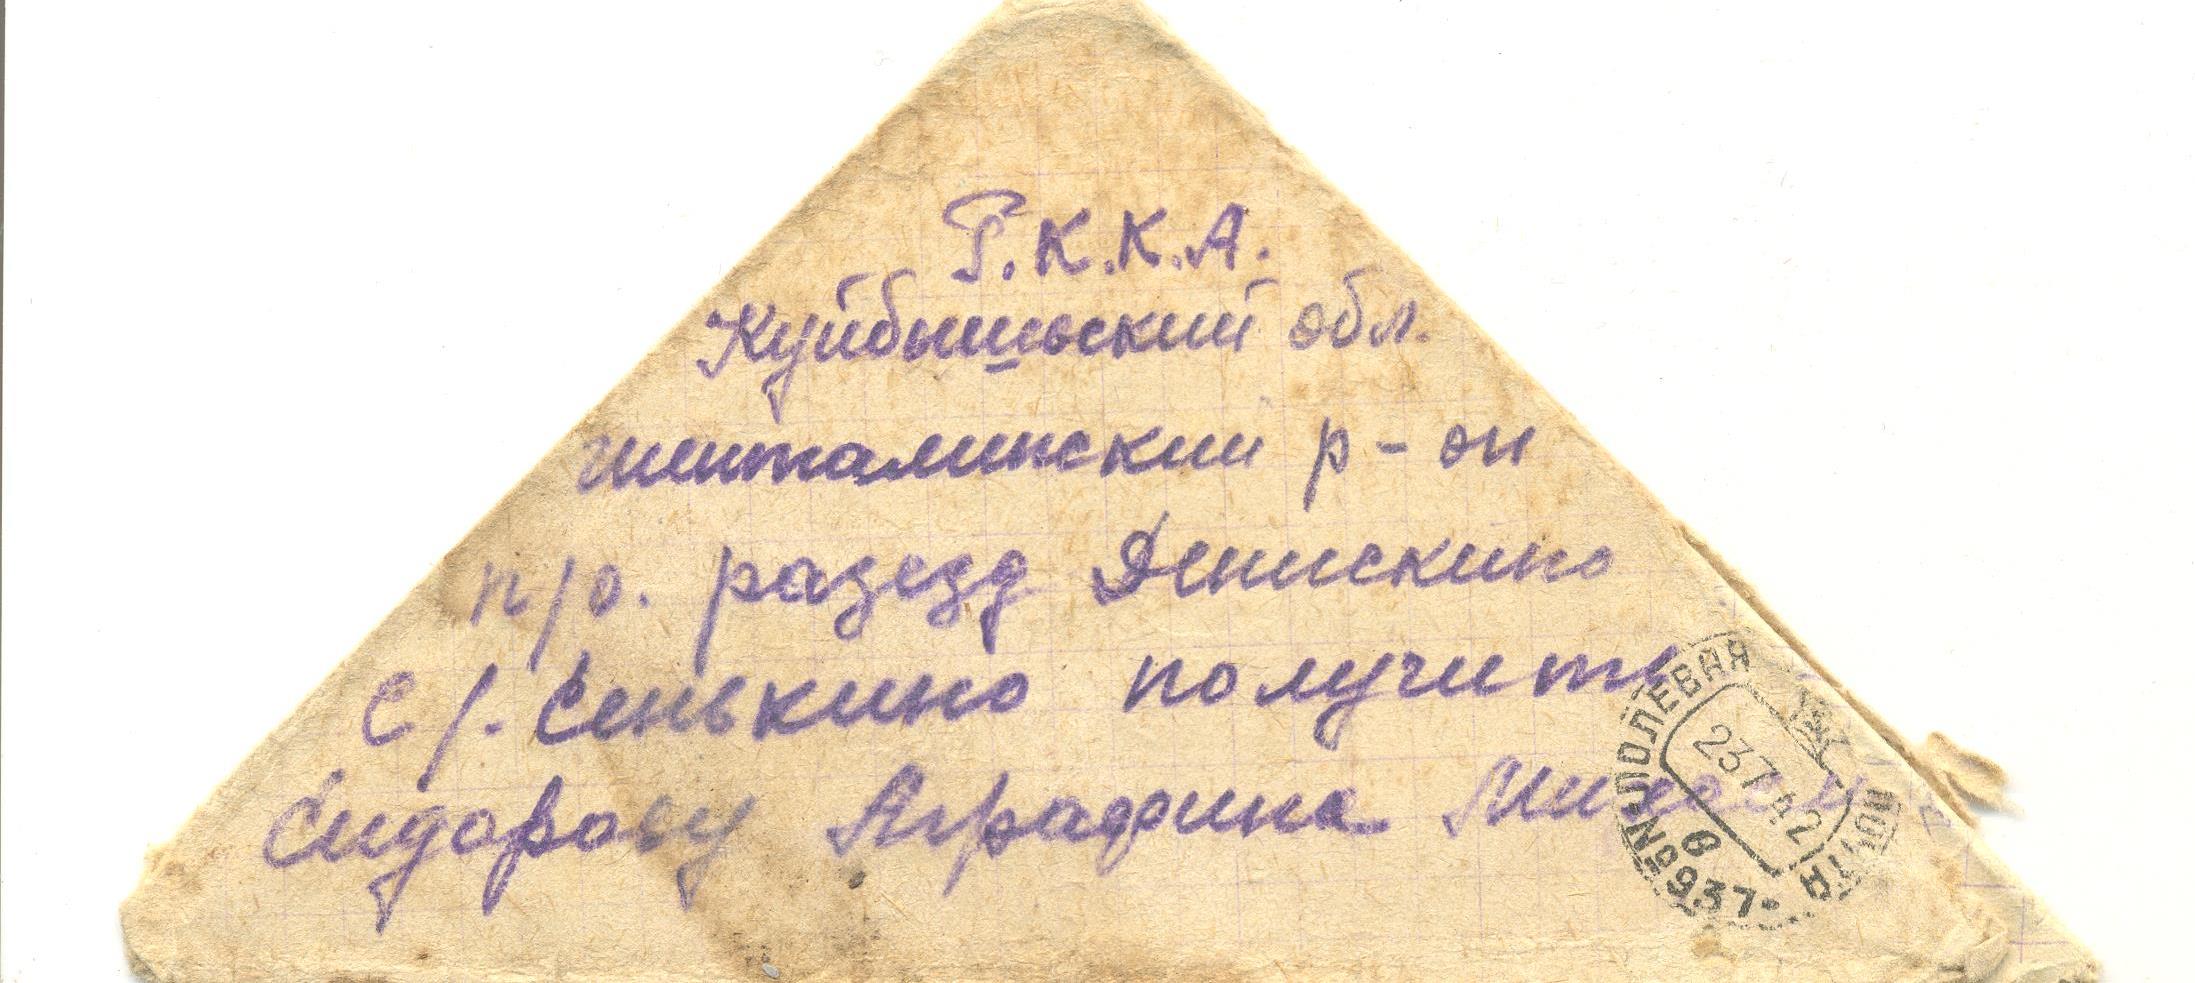 Р.К.К.А.
Куйбышьский обл.
шенталинский р-он
п/о. разезд Денискино
с/. Сенькино получить
Сидорову Аграфина
ПОЛЕВАЯ ПОЧТА
23 7 42
№ 937